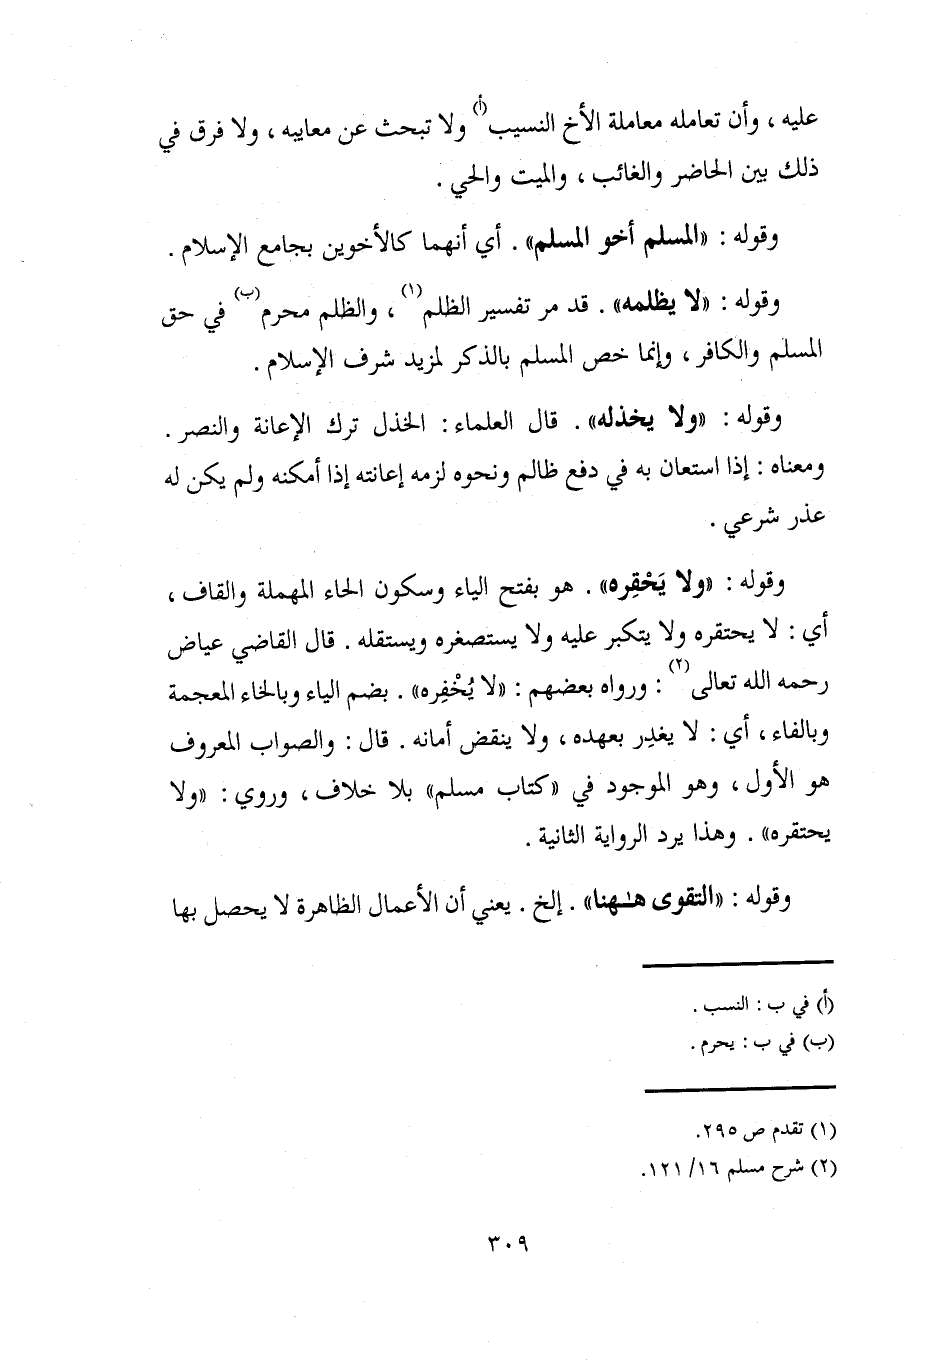 عليه ، وأن تعامله معاملة الأخ النسيب(أ) ولا تبحث عن معايبه ، ولا فرق في
ذلك بين الحاضر والغائب ، والميت والحي .
وقوله : «المسلم أخو المسلم» . أي أنهما كالأخوين بجامع الإسلام .
وقوله : «لا يظلمه» . قد مر تفسير الظلم(١) ، والظلم محرم(ب) في حق
المسلم والكافر ، وإنما خص المسلم بالذكر لمزيد شرف الإسلام .
وقوله : «ولا يخذله» . قال العلماء : الخذل ترك الإعانة والنصر .
ومعناه : إذا استعان به في دفع ظالم ونحوه لزمه إعانته إذا أمكنه ولم يكن له
عذر شرعي .
وقوله : «ولا يَحْقِره» . هو بفتح الياء وسكون الحاء المهملة والقاف ،
أي : لا يحتقره ولا يتكبر عليه ولا يستصغره ويستقله . قال القاضي عياض
رحمه الله تعالى(٢) : ورواه بعضهم : «لا يُخْفِره» . بضم الياء وبالخاء المعجمة
وبالفاء ، أي : لا يغدِر بعهده ، ولا ينقض أمانه . قال : والصواب المعروف
هو الأول ، وهو الموجود في «كتاب مسلم» بلا خلاف ، وروي : «ولا
يحتقره» . وهذا يرد الرواية الثانية .
وقوله : «التقوى هـٰـهنا» . إلخ . يعني أن الأعمال الظاهرة لا يحصل بها
(أ) في ب : النسب .
(ب) في ب : يحرم .
(١) تقدم ص ٢٩٥.
(٢) شرح مسلم ١٦/ ١٢١.
٣٠٩